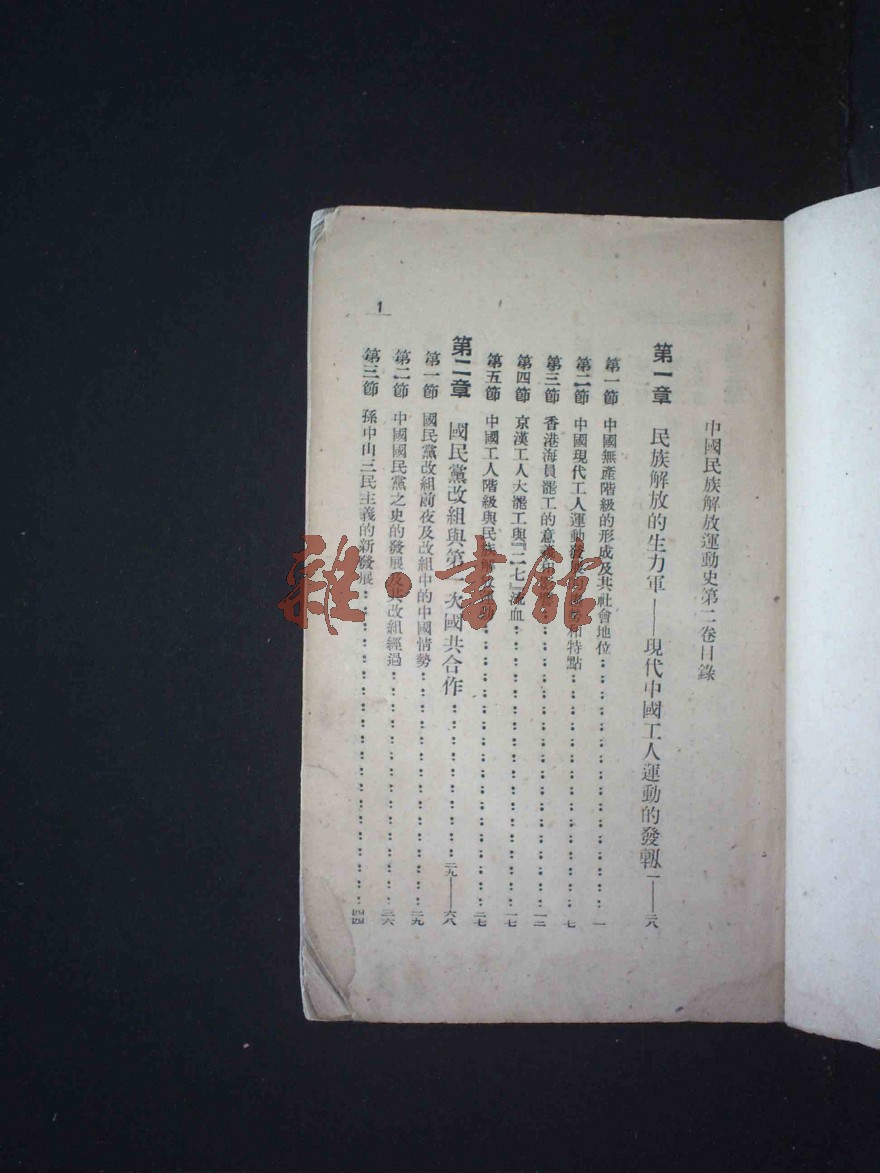 中國民族解放運動史第二卷目錄
第一章 民族解放的生力軍——現代中國工人運動的發軔 一——二八
第一節 中國無產階級的形成及其社會地位 一
第二節 中國現代工人運動發展 和特點 七
第三節 香港海員罷工的意義 一二
第四節 京漢工人大罷工與『二七』流血 一七
第五節 中國工人階級與民族解放 二七
第二章 國民黨改組與第一次國共合作 二九——六八
第一節 國民黨改組前夜及改組中的中國情勢 二九
第二節 中國國民黨之史的發展及其改組經過 三六
第三節 孫中山三民主義的新發展 四四
1
雜·書館